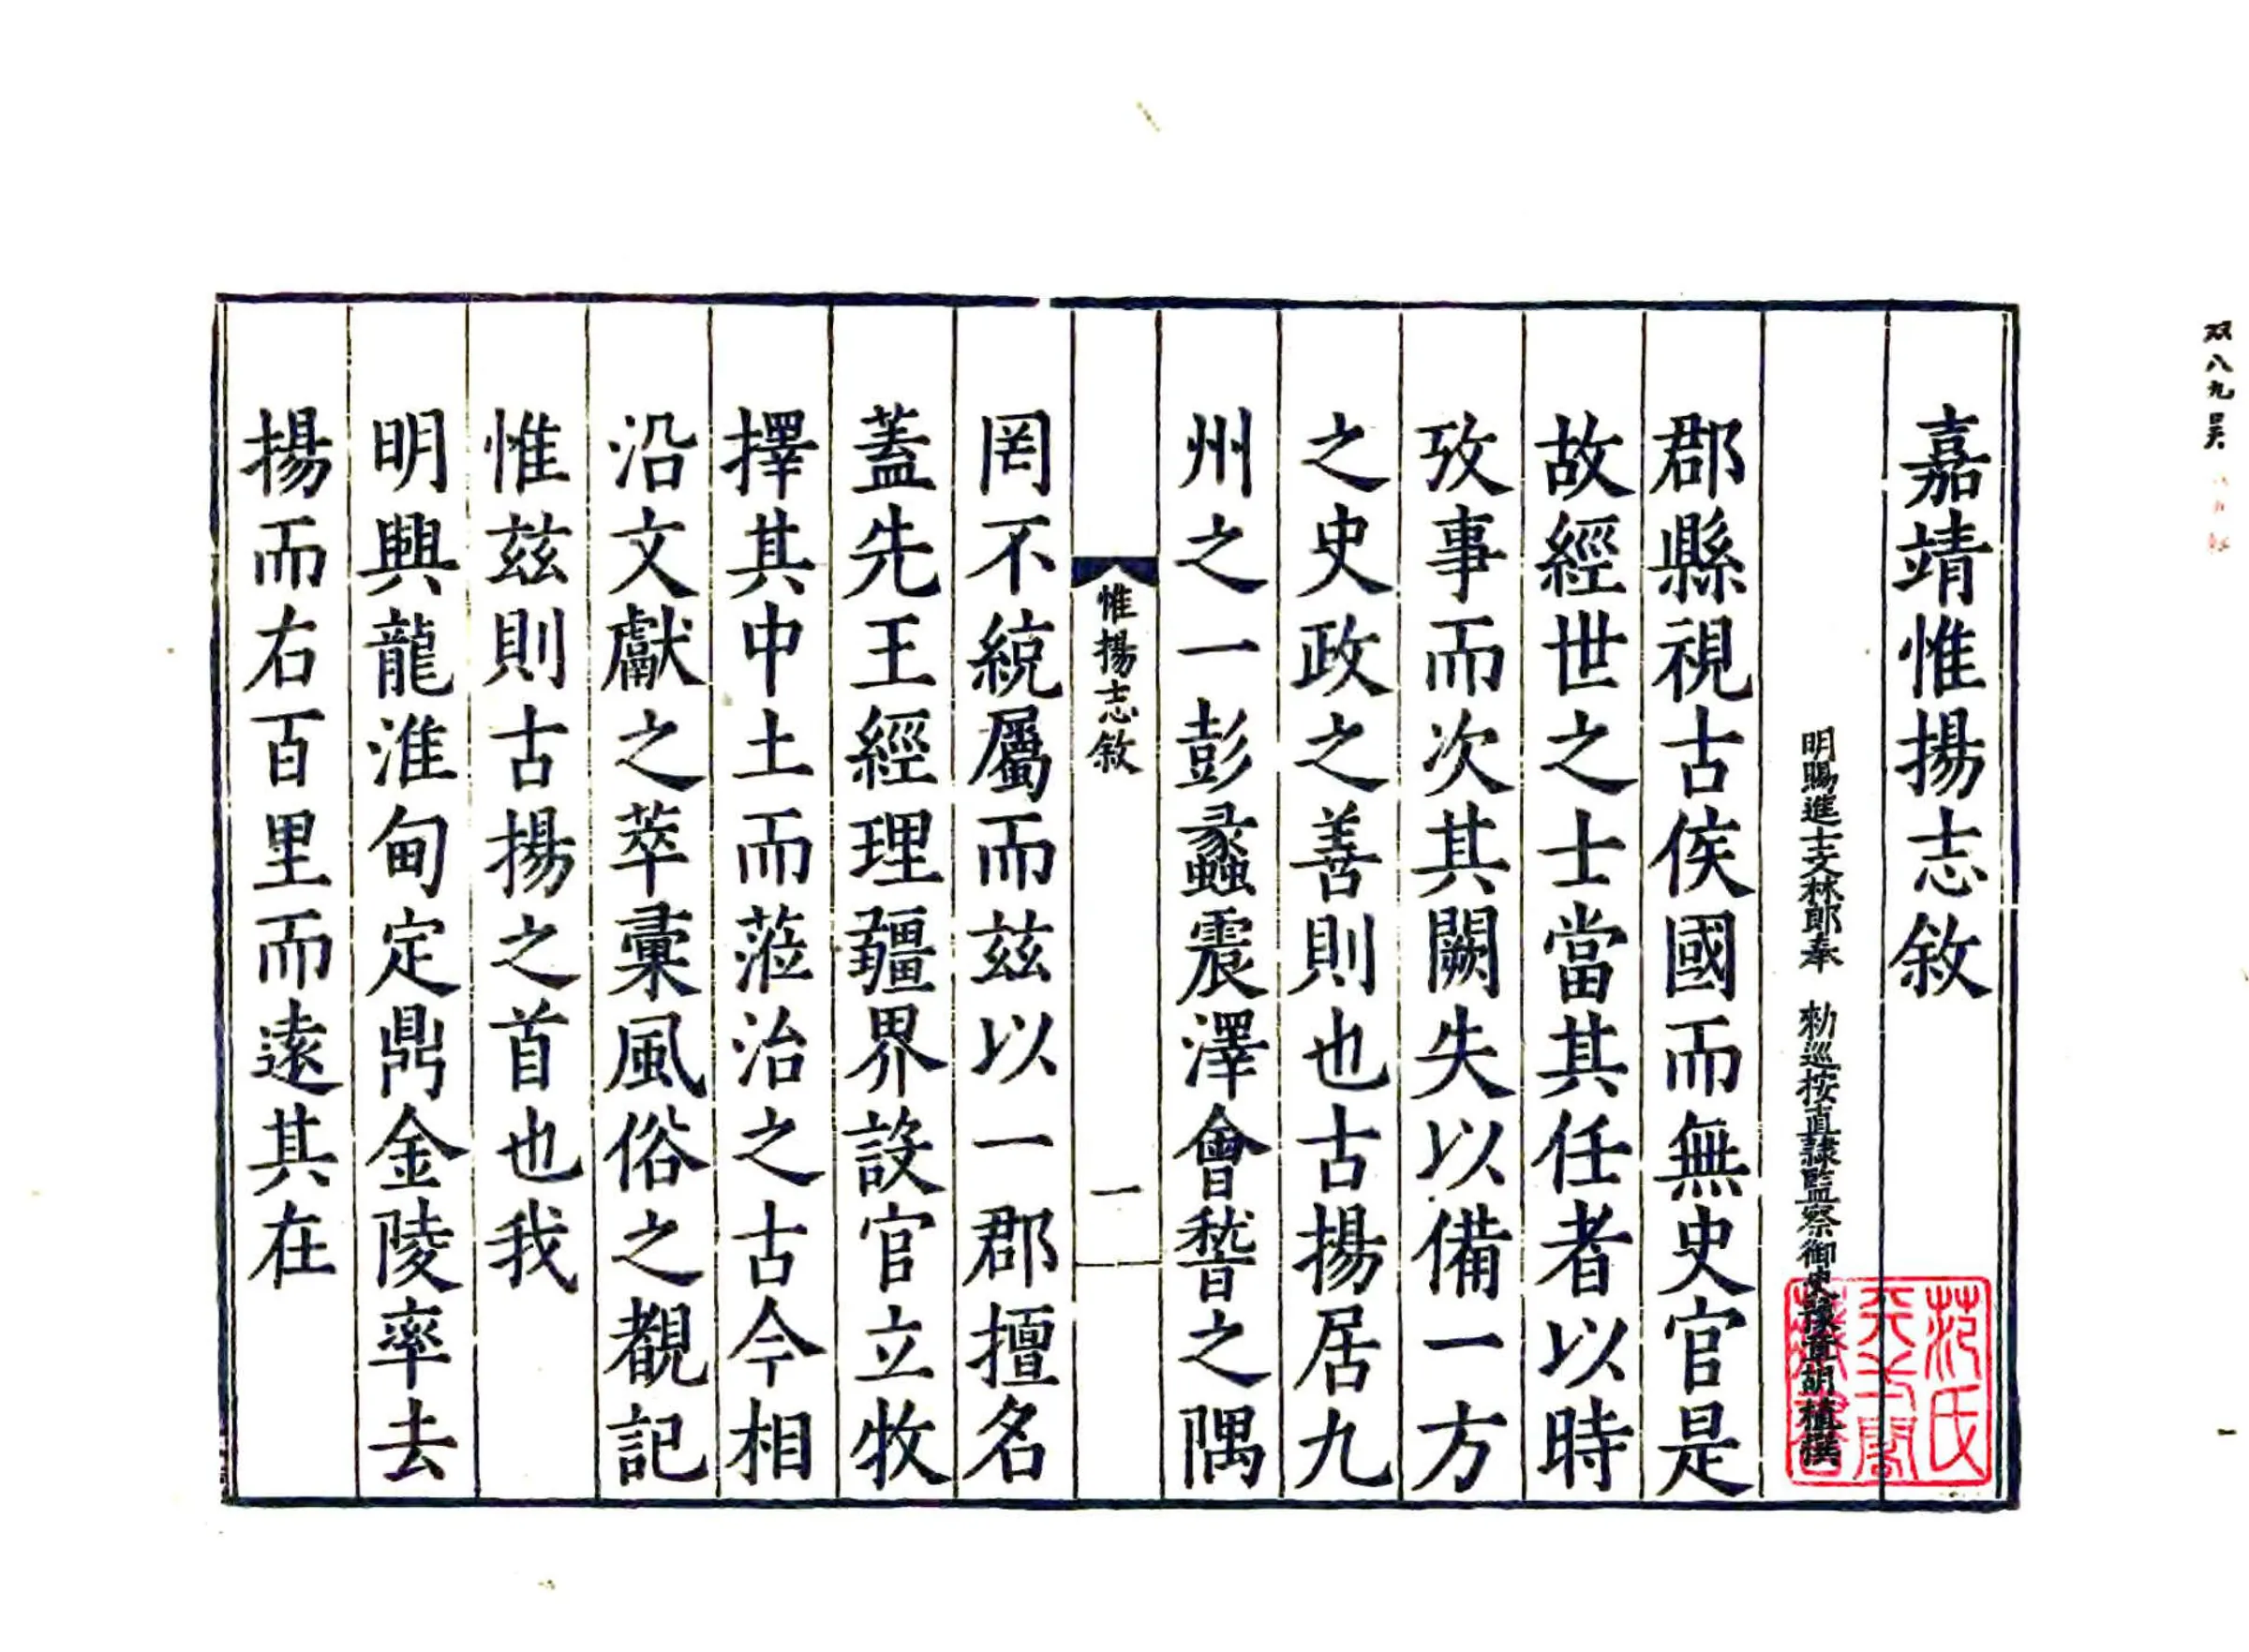 嘉靖惟揚志敘
明賜進士文林郎奉　勑巡按直隷監察御史豫章胡植撰
郡縣視古侯國而無史官是
故經世之士當其任者以時
攷事而次其闕失以備一方
之史政之善則也古揚居九
州之一彭蠡震澤會嵇之隅
惟揚志敘
一
罔不統屬而兹以一郡擅名
蓋先王經理疆界設官立牧
擇其中土而蒞治之古今相
沿文獻之萃彙風俗之覩記
惟兹則古揚之首也我
明興龍淮甸定鼎金陵率去
揚而右百里而遠其在
范氏
天一閣
藏書